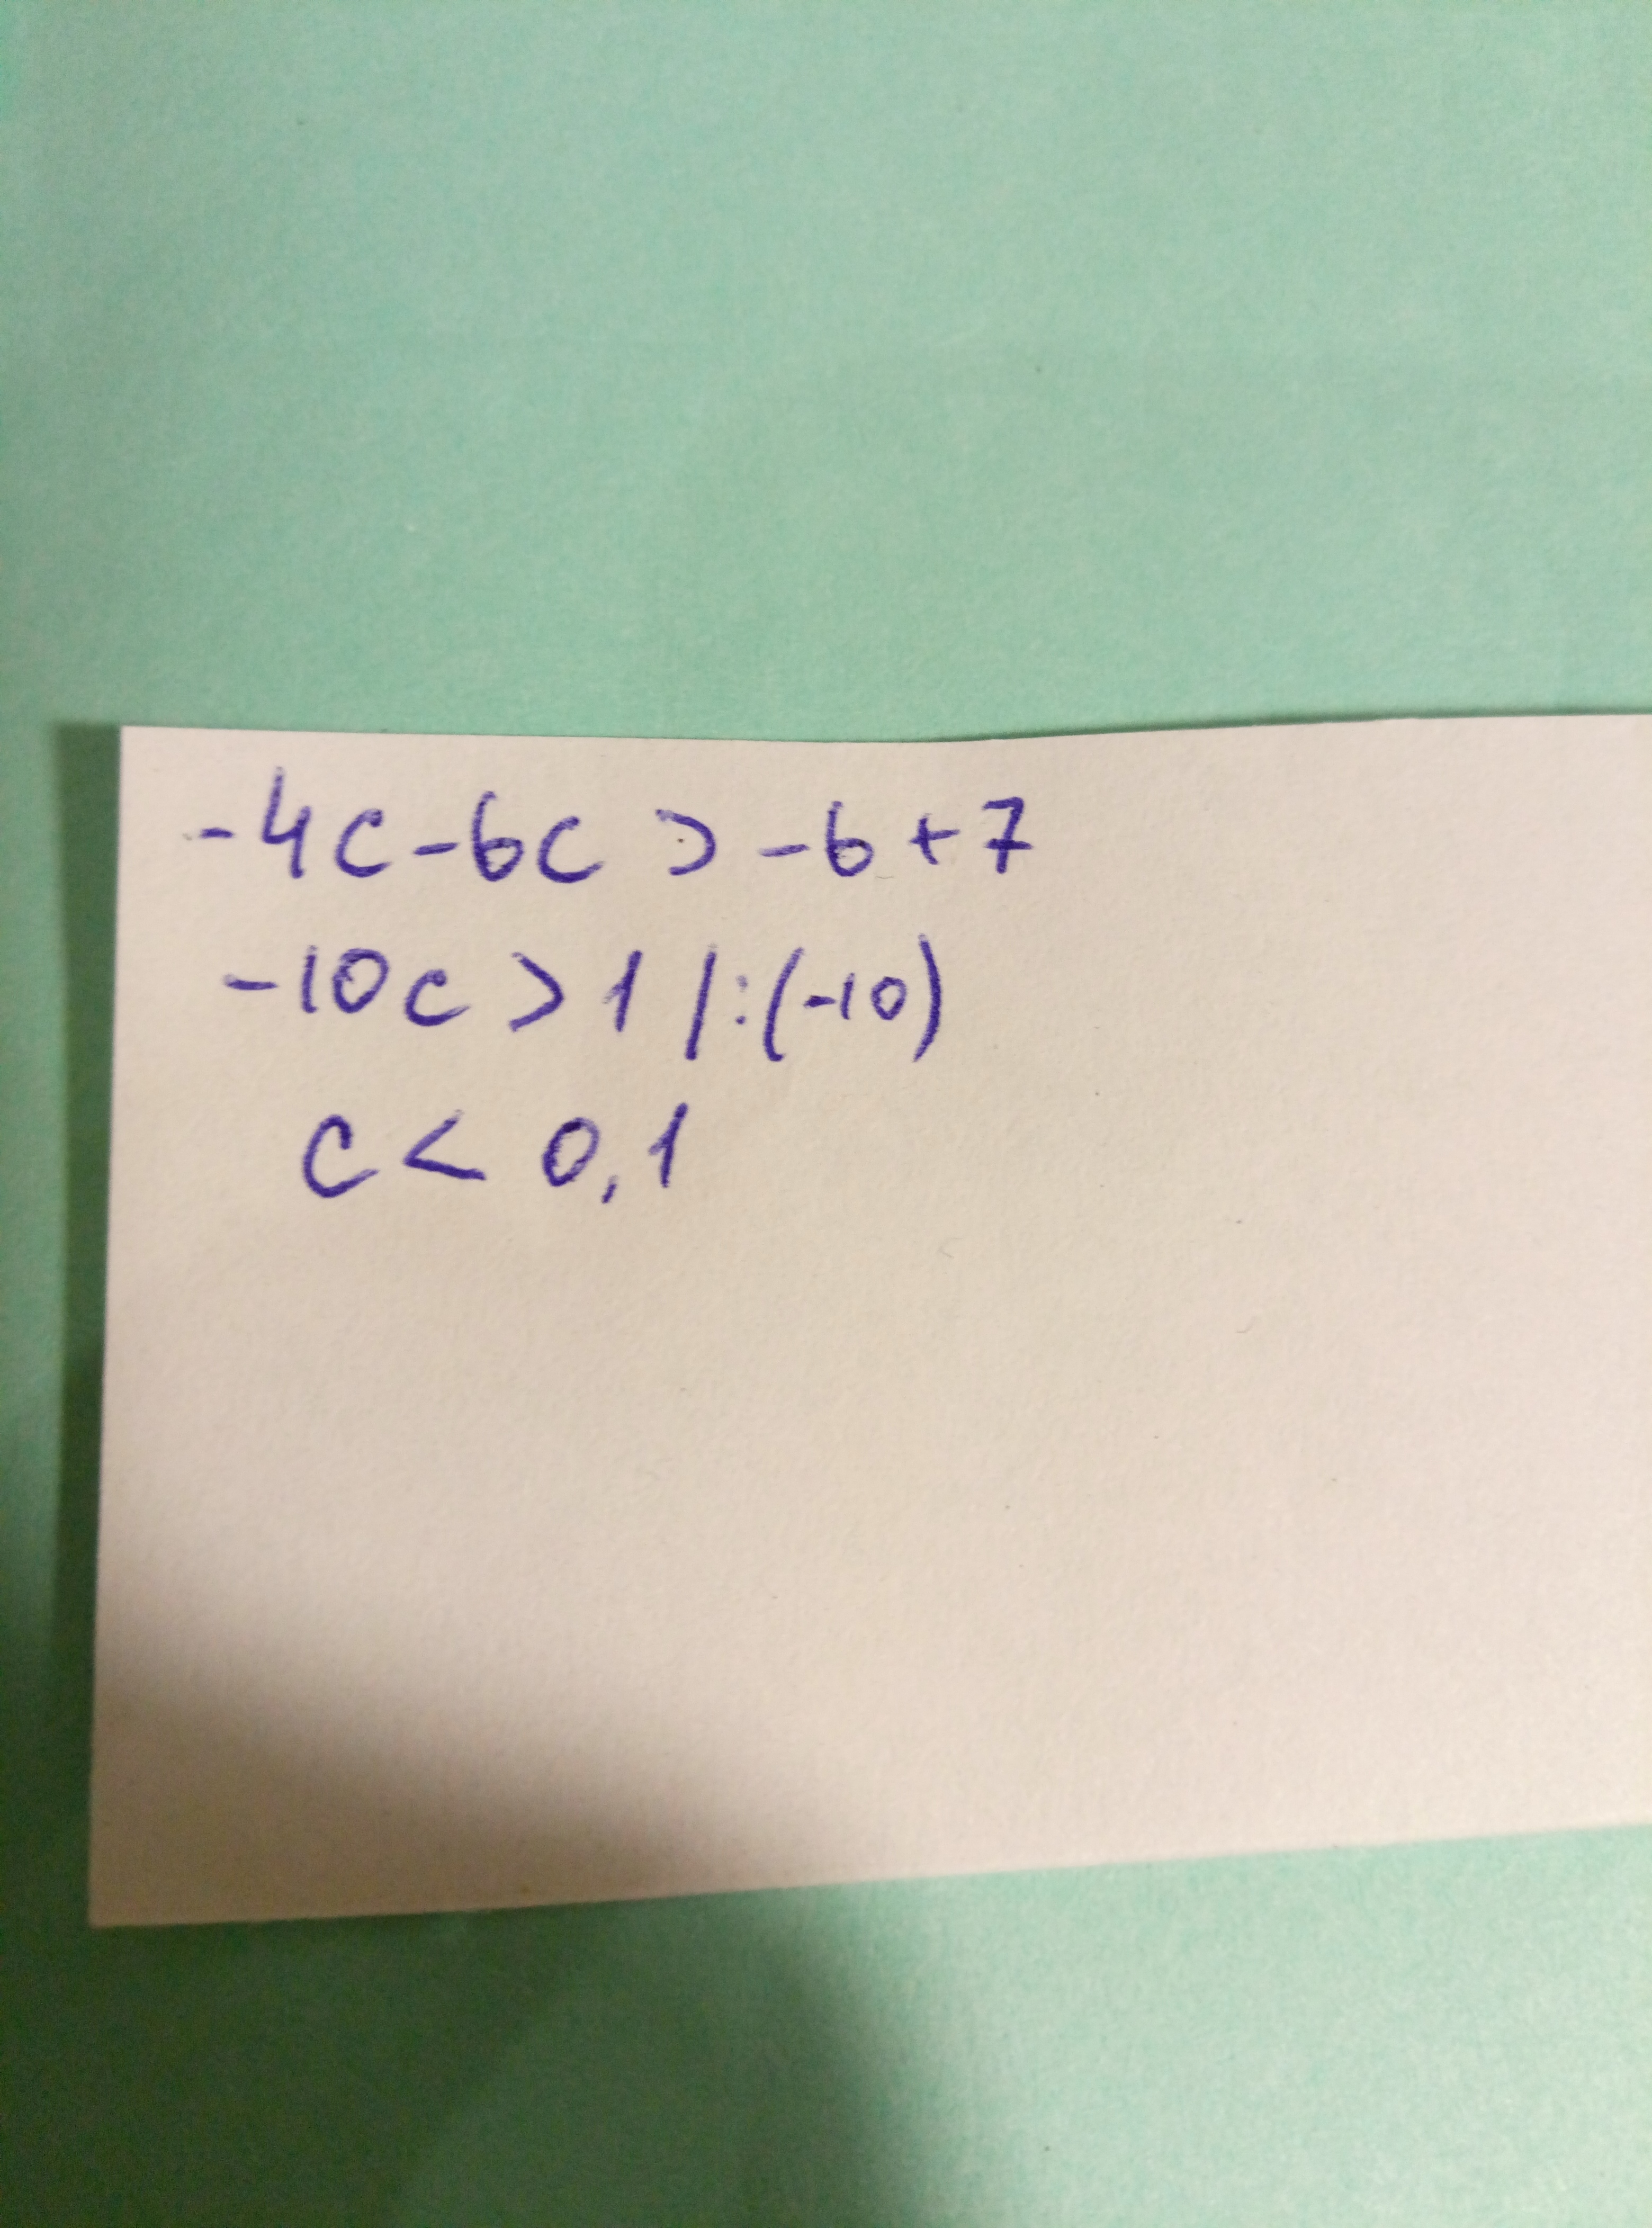 -4c-6c > -6+7
-10c > 1 /:(-10)
c < 0,1